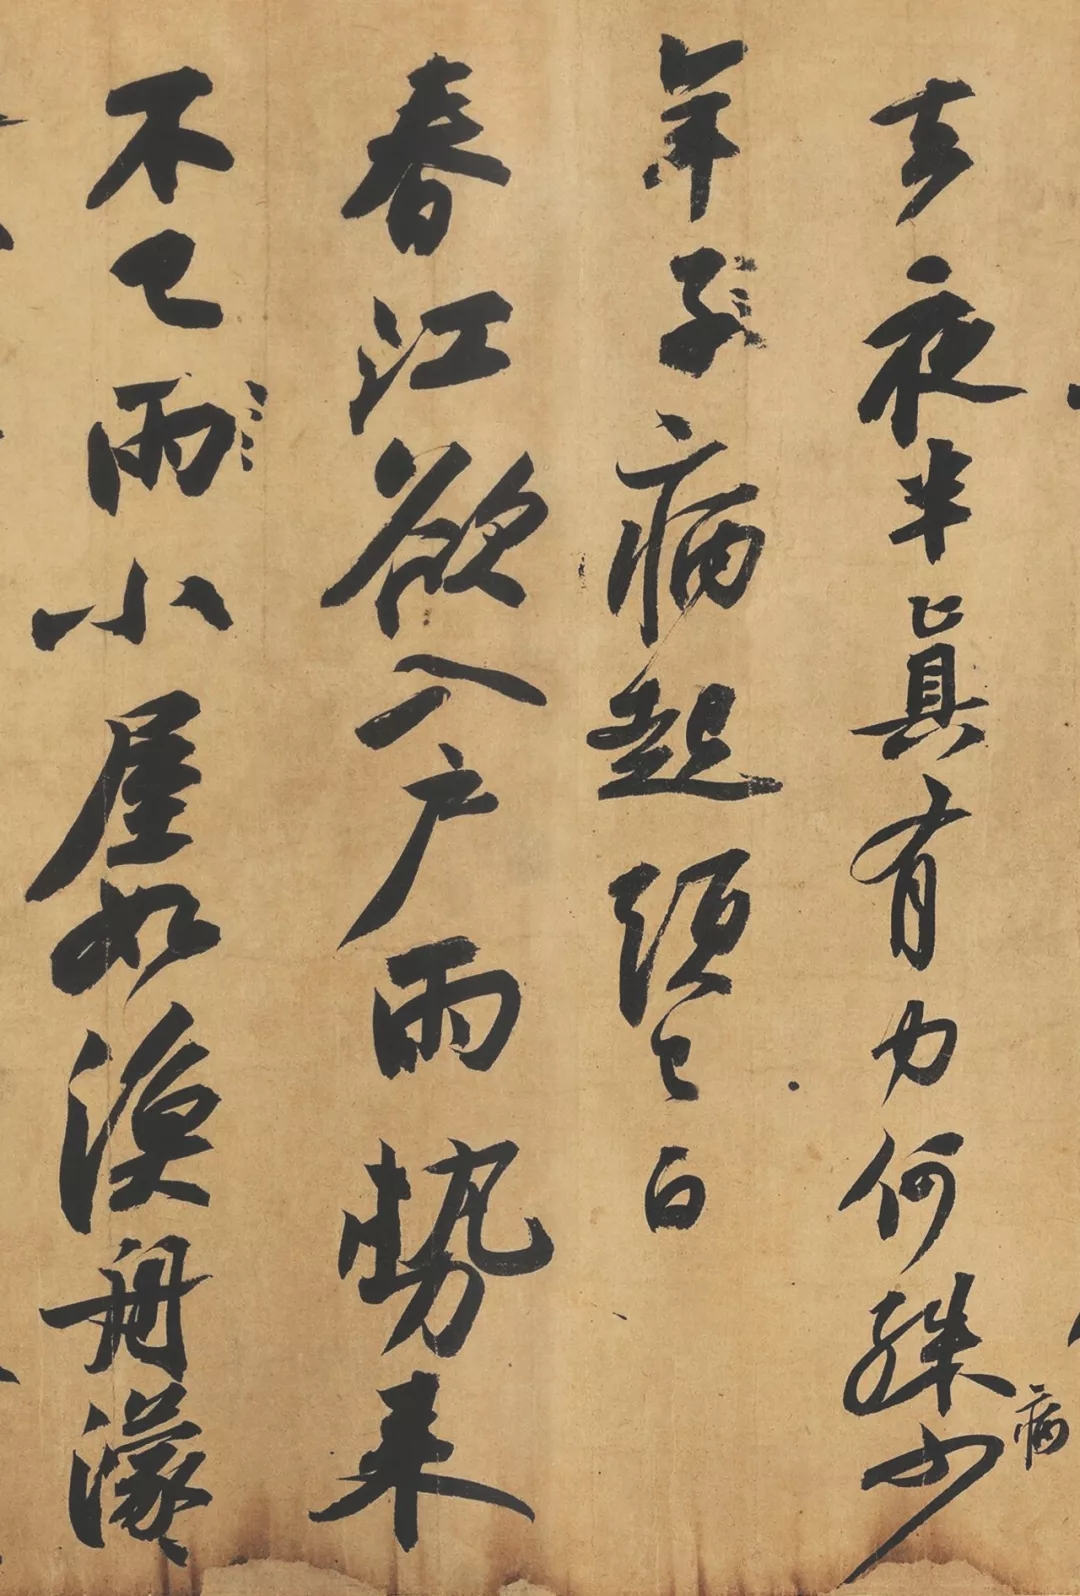 去夜半眞有力何殊病少
年子病起須已白
春江欲入戶雨勢來
不已雨小屋如漁舟濛〻